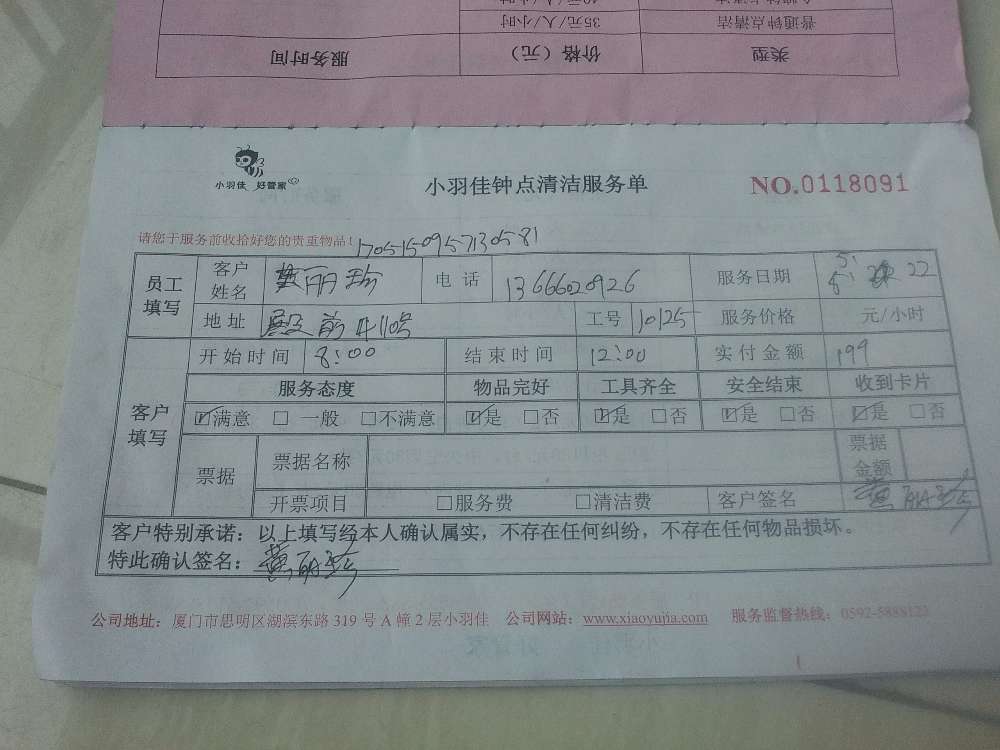 类型 价格（元） 服务时间
普通钟点清洁 35元/人/小时
小羽佳 好管家
小羽佳钟点清洁服务单
NO.0118091
请您于服务前收拾好您的贵重物品！ 1705150957130581
员工填写 客户姓名 黄丽珍 电话 13666020926 服务日期 5. 22
地址 殿前 工号 10125 服务价格 元/小时
客户填写 开始时间 8:00 结束时间 12:00 实付金额 199
服务态度 物品完好 工具齐全 安全结束 收到卡片
☑满意 □ 一般 □不满意 ☑是 □否 ☑是 □否 ☑是 □否 ☑是 □否
票据 票据名称 票据金额
开票项目 □服务费 □清洁费 客户签名 黄丽珍
客户特别承诺：以上填写经本人确认属实，不存在任何纠纷，不存在任何物品损坏。
特此确认签名：黄丽珍
公司地址：厦门市思明区湖滨东路 319 号 A 幢 2 层小羽佳 公司网站：www.xiaoyujia.com 服务监督热线：0592-5888123